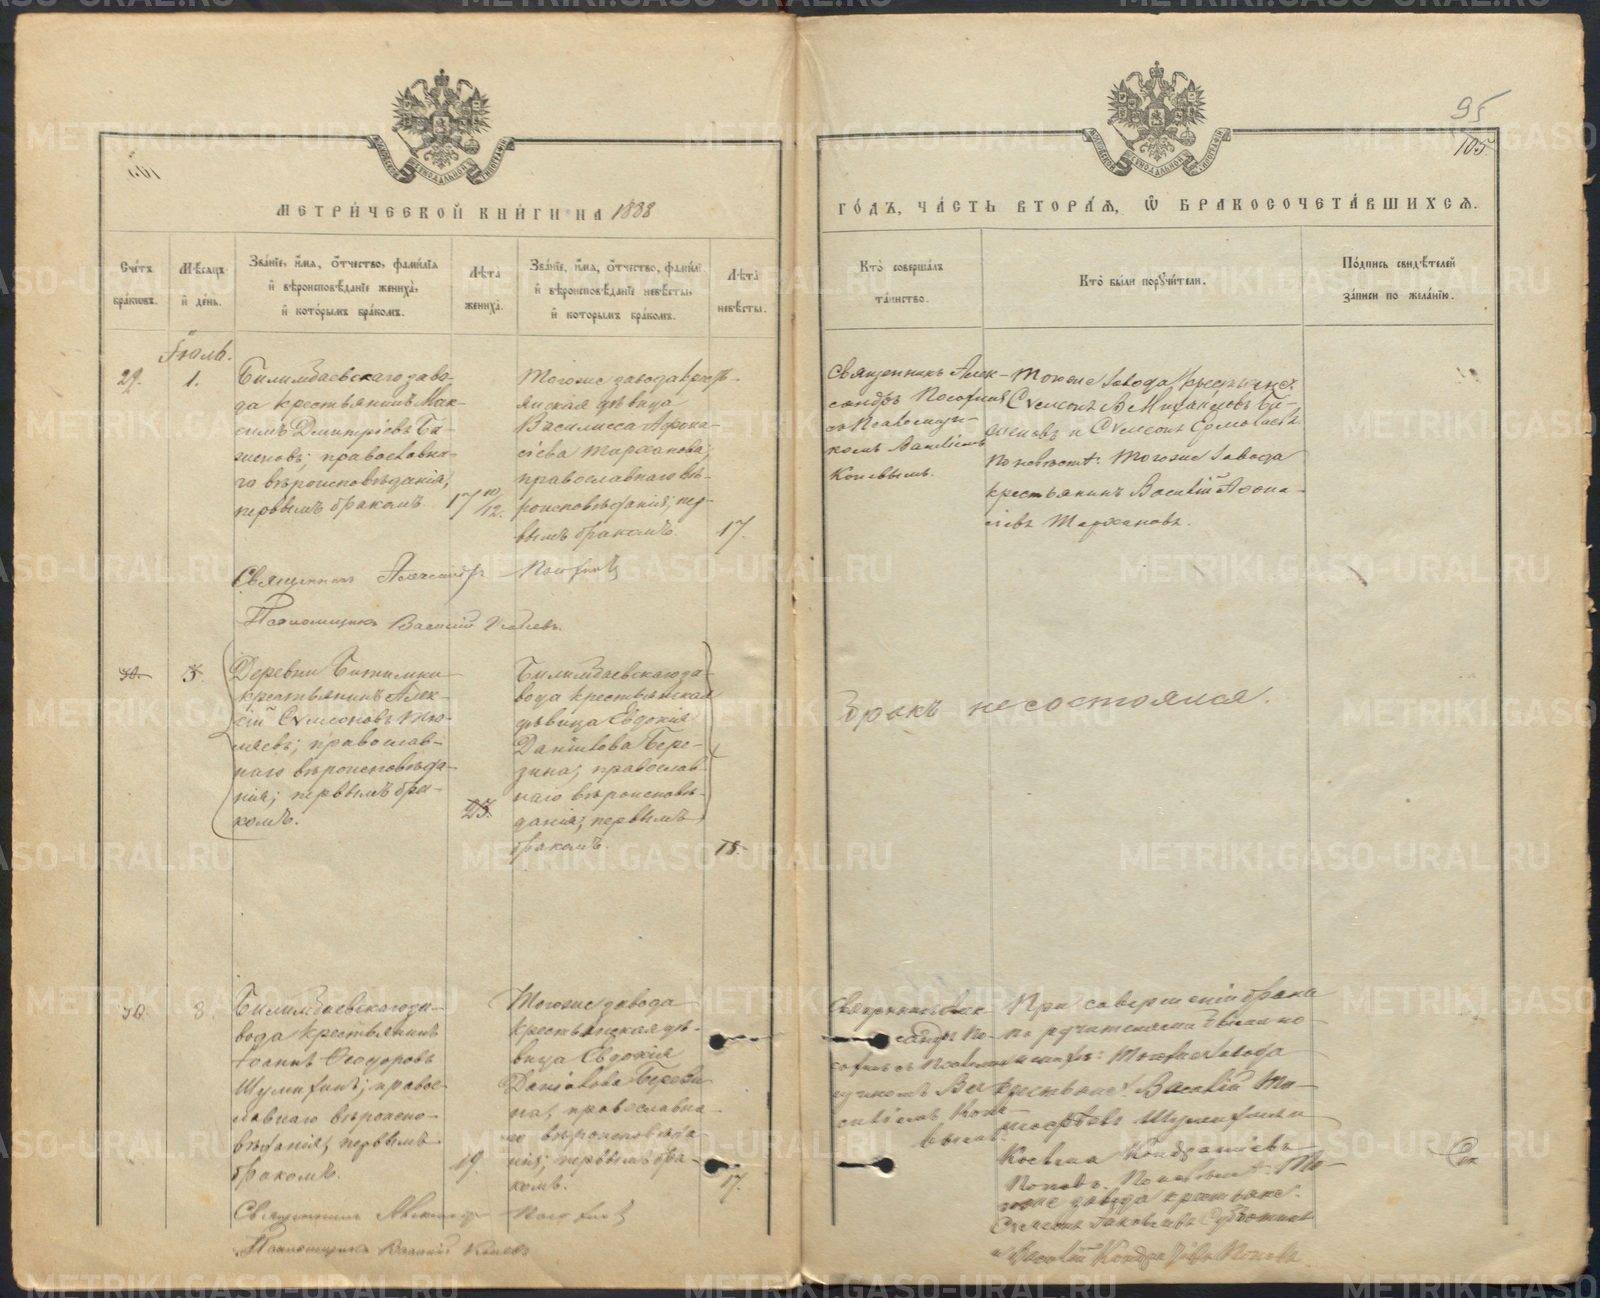 95
105.
МЕТРИ́ЧЕСКОЙ КНИ́ГИ НА 1888
ГО́ДЪ, ЧА́СТЬ ВТОРА́Я, Ѿ БРАКОСОЧЕТА́ВШИХСЯ.
Сче́тъ бра́ковъ.
Мѣ́сяцъ и҆ де́нь.
Зва́нїе, и҆́мя, ѻ҆́тчество, фами́лїя
и҆ вѣроисповѣ́данїе жениха̀,
и҆ кото́рымъ бра́комъ.
Лѣ́та жениха̀.
Зва́нїе, и҆́мя, ѻ҆́тчество, фами́лї
и҆ вѣроисповѣ́данїе невѣ́сты,
и҆ кото́рымъ бра́комъ.
Лѣ́та невѣ́сты.
Кто̀ соверша́лъ
та́инство.
Кто̀ бы́ли порꙋчи́тели.
По́дпись свидѣ́телей
за́писи по жела́нїю.
Іюль.
29.
1.
Билимбаевскаго заво-
да крестьянинъ Мак-
симъ Димитріевъ
православна-
го вѣроисповѣданія;
первымъ бракомъ.
17 10/12.
Тогоже завода кресть-
янская дѣвица
Василисса Афона-
сіева Тарханова;
православнаго вѣ-
роисповѣданія; пер-
вымъ бракомъ.
17.
Священникъ Алек-
сандръ
съ Псаломщи-
комъ Василіемъ
Тогоже завода крестьяне:
Сѵмеонъ Михайловъ
и Сѵмеонъ
По невѣстѣ: Тогоже завода
крестьянинъ Василій Афона-
сіевъ Тархановъ.
Священникъ Александръ
Псаломщикъ Василій
30.
3.
Деревни Битимки
крестьянинъ Алек-
сій Сѵмеоновъ
православ-
наго вѣроисповѣда-
нія; первымъ бра-
комъ.
23.
Билимбаевскаго за-
вода крестьянская
дѣвица Евдокія
Даніилова Бере-
зина; православ-
наго вѣроисповѣ-
данія; первымъ
бракомъ.
18.
Бракъ несостоялся.
30.
8.
Билимбаевскаго за-
вода крестьянинъ
Іоаннъ Ѳеодоровъ
Шумихинъ; правос-
лавнаго вѣроиспо-
вѣданія; первымъ
бракомъ.
19.
Тогоже завода
крестьянская дѣ-
вица Евдокія
Даніилова Берези-
на, православна-
го вѣроисповѣда-
нія; первымъ бра-
комъ.
17.
При совершеніи брака
поручителями были по
женихѣ: Тогоже завода
крестьяне: Василій Ти-
моѳеевъ Шумихинъ и
Косьма Кондратіевъ
Поповъ. По невѣстѣ: То-
гоже завода крестьяне:
Сѵмеонъ Іаковлевъ Субботинъ
и Василій Кондратіевъ Поповъ.
Священникъ Александръ
Псаломщикъ Василій
METRIKI.GASO-URAL.RU